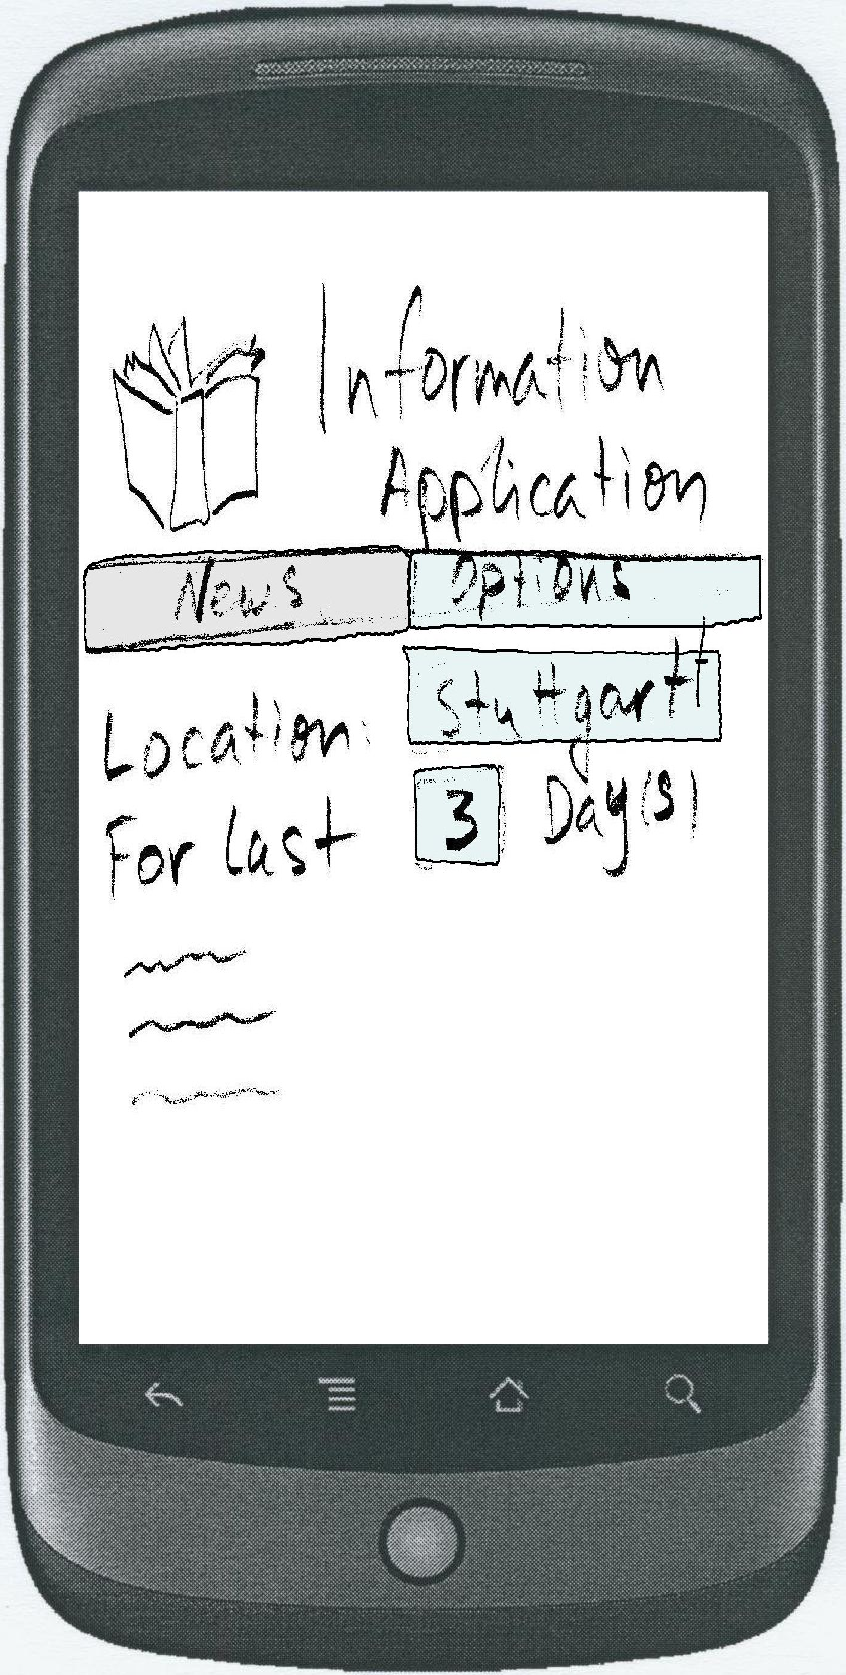 Information
Application
News Options
Location: Stuttgart
For last 3 Day(s)